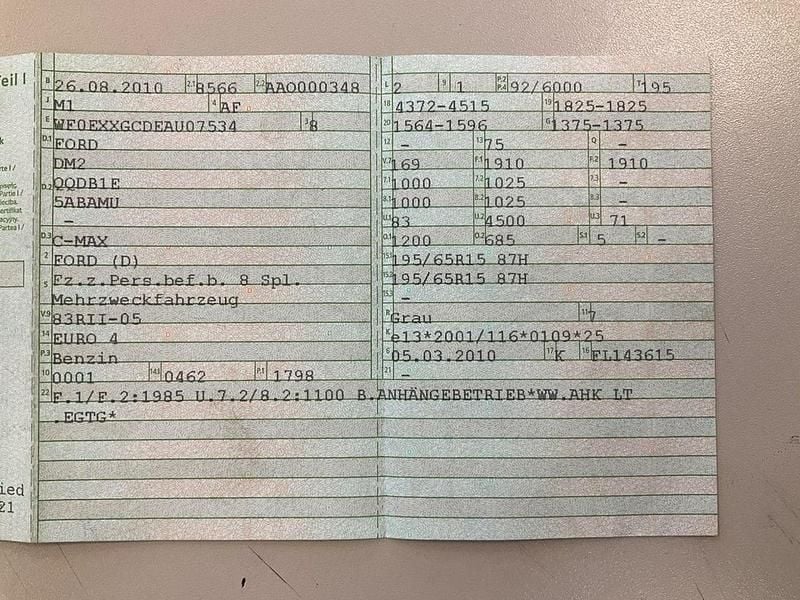 Teil I
B 26.08.2010 2.1 8566 2.2 AAO000348
J M1 4 AF
E WF0EXXGCDEAU07534 3 8
D.1 FORD
DM2
D.2 QQDB1E
5ABAMU
–
D.3 C-MAX
2 FORD (D)
5 Fz.z.Pers.bef.b. 8 Spl.
Mehrzweckfahrzeug
V.9 83RII-05
14 EURO 4
P.3 Benzin
10 0001 14.1 0462 P.1 1798
L 2 9 1 P.2 P.4 92/6000 T 195
18 4372-4515 19 1825-1825
20 1564-1596 G 1375-1375
12 – 13 75 Q –
V.7 169 F.1 1910 F.2 1910
7.1 1000 7.2 1025 7.3 –
8.1 1000 8.2 1025 8.3 –
U.1 83 U.2 4500 U.3 71
O.1 1200 O.2 685 S.1 5 S.2 –
15.1 195/65R15 87H
15.2 195/65R15 87H
15.3 –
R Grau 11 7
K e13*2001/116*0109*25
6 05.03.2010 17 K 16 FL143615
21 –
22 F.1/F.2:1985 U.7.2/8.2:1100 B.ANHÄNGEBETRIEB*WW.AHK LT
.EGTG*
ied
21